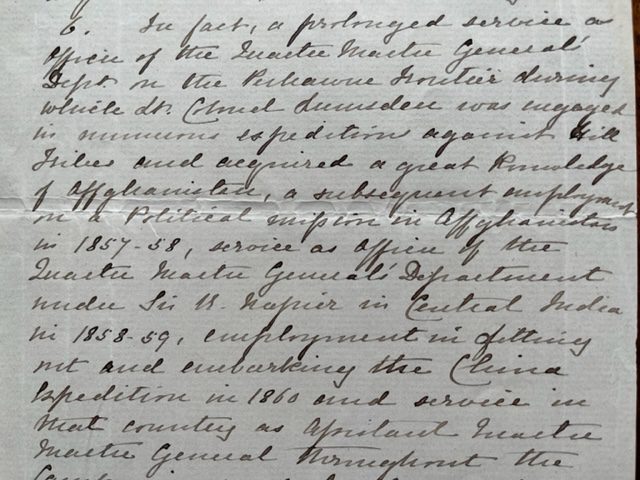 6. In fact, a prolonged service as
Officer of the Quarter Master General's
Dept. on the Peshawur Frontier during
which Lt. Colonel Lumsden was engaged
in numerous expeditions against Hill
Tribes and acquired a great knowledge
of Affghanistan, a subsequent employment
on a Political mission in Affghanistan
in 1857-58, service as Officer of the
Quarter Master General's Department
under Sir R. Napier in Central India
in 1858-59, employment in fitting
out and embarking the China
Expedition in 1860 and service in
that country as Assistant Quarter
Master General throughout the